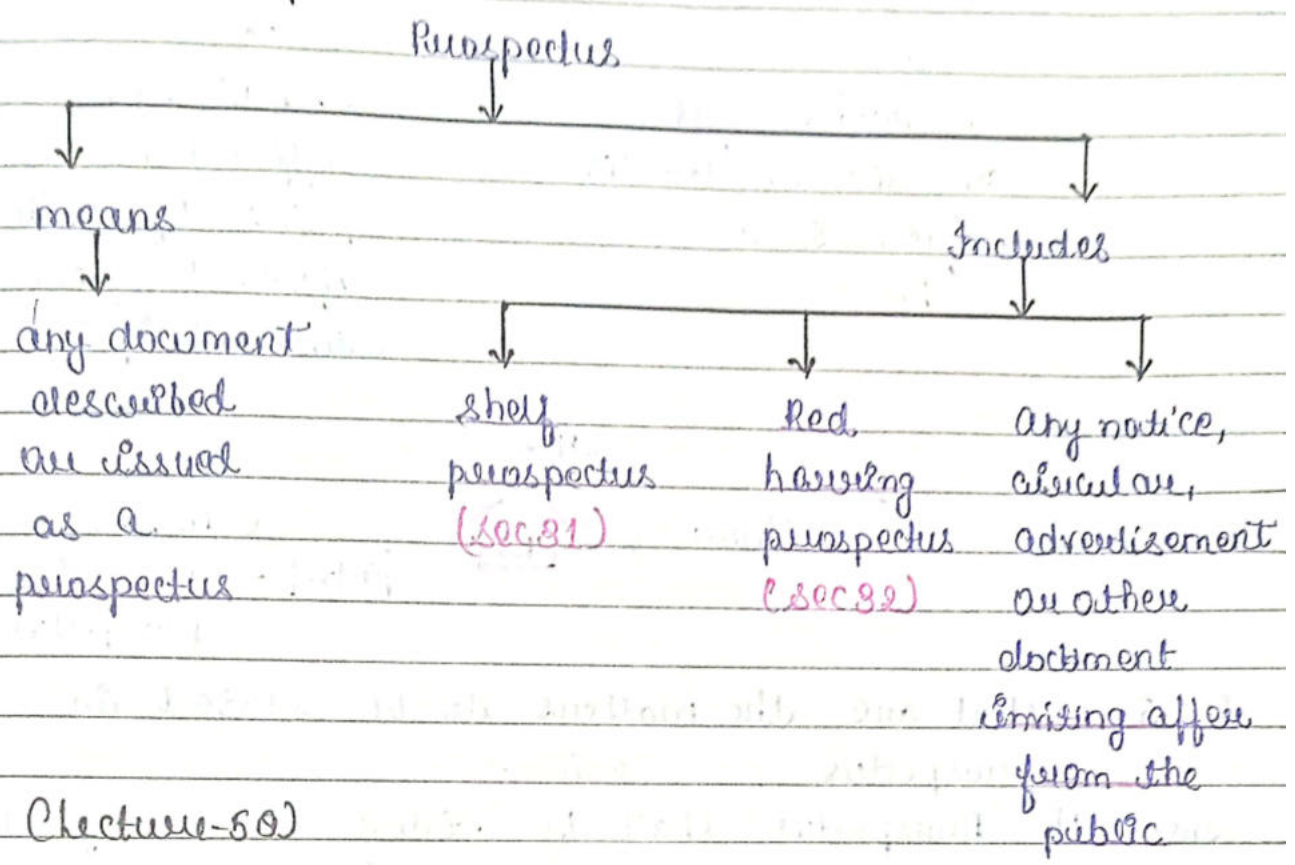 Prospectus
means
Includes
any document
described
or issued
as a
prospectus
shelf
prospectus
(sec 31)
Red
harring
prospectus
(sec 32)
any notice,
circular,
advertisement
or other
document
inviting offer
from the
public
(Lecture-50)